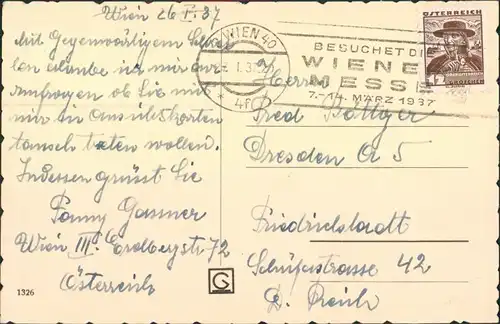 Wien 26 I. 37
Mit Gegenwärtigem
len erlaube ich mir
Anfragen ob Sie mit
mir in Ansichtskarten
tausch treten wollen.
Indessen grüsst Sie
Fanny Gassner
Wien III. Erdbergstr 72
Österreich
1326
G
WIEN 40
BESUCHET DIE
WIENER
MESSE
7.-14. MÄRZ 1937
ÖSTERREICH
12
Herrn
Fred Böttger
Dresden A 5
Friedrichstadt
Schäferstrasse 42
D. Reich